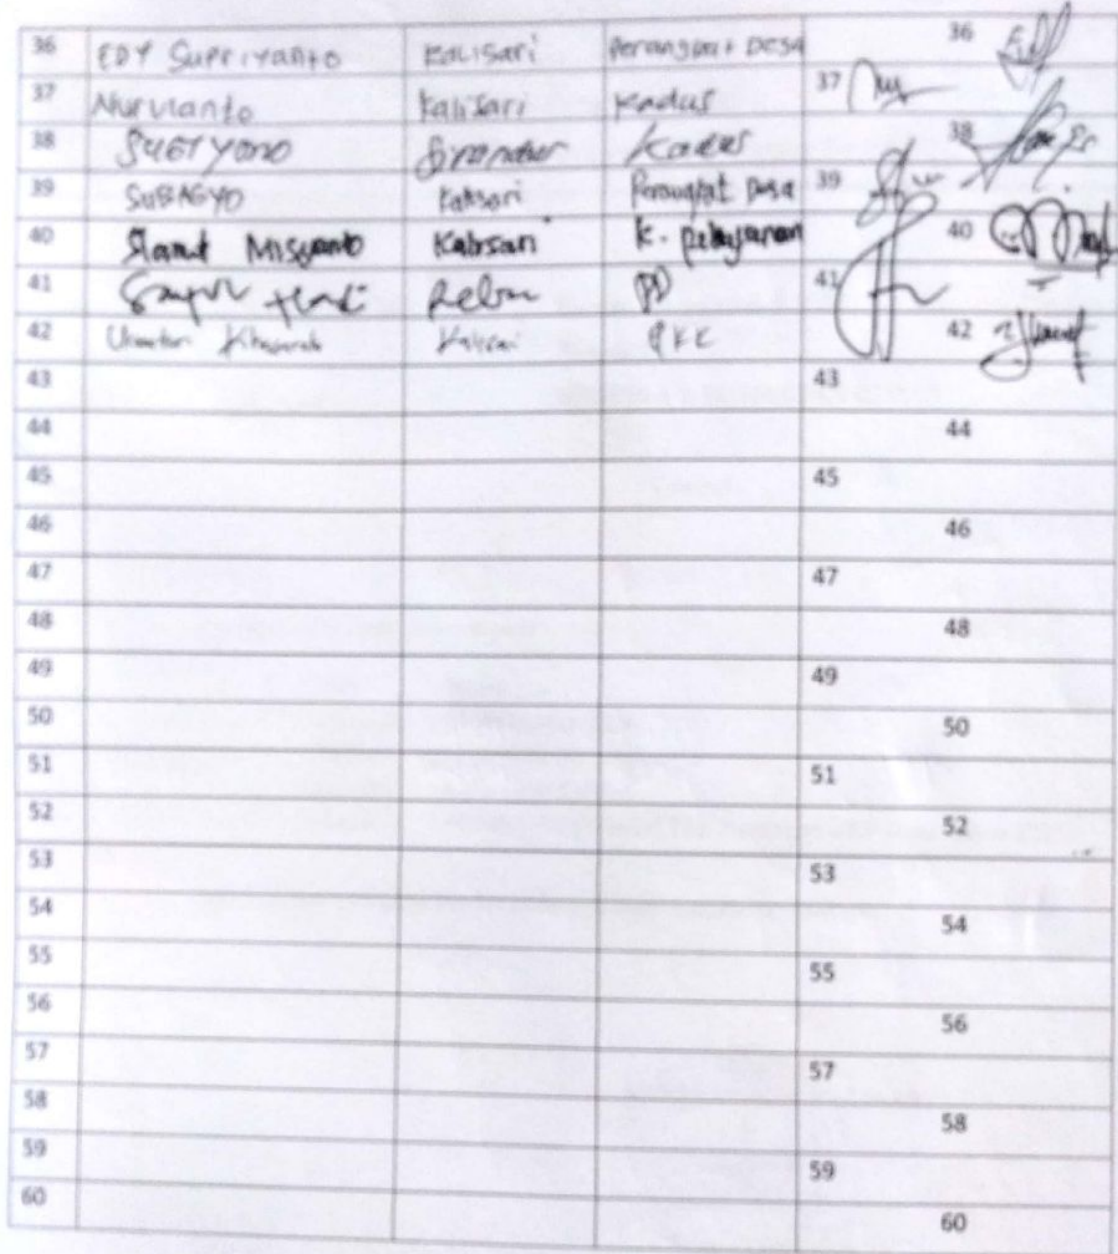 36 EDY Supriyanto Kalisari Perangkat Desa 36
37 Nurvianto Kalisari Kadus 37
38 SUGIYONO Kadus 38
39 SUBAGYO Kalisari Perangkat Desa 39
40 Slamet Misyanto Kalisari K. pelayanan 40
41 41
42 Kalisari PKK 42
43 43
44 44
45 45
46 46
47 47
48 48
49 49
50 50
51 51
52 52
53 53
54 54
55 55
56 56
57 57
58 58
59 59
60 60